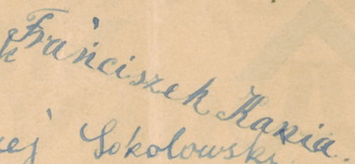 Franciszek Kania.
Sokołowski